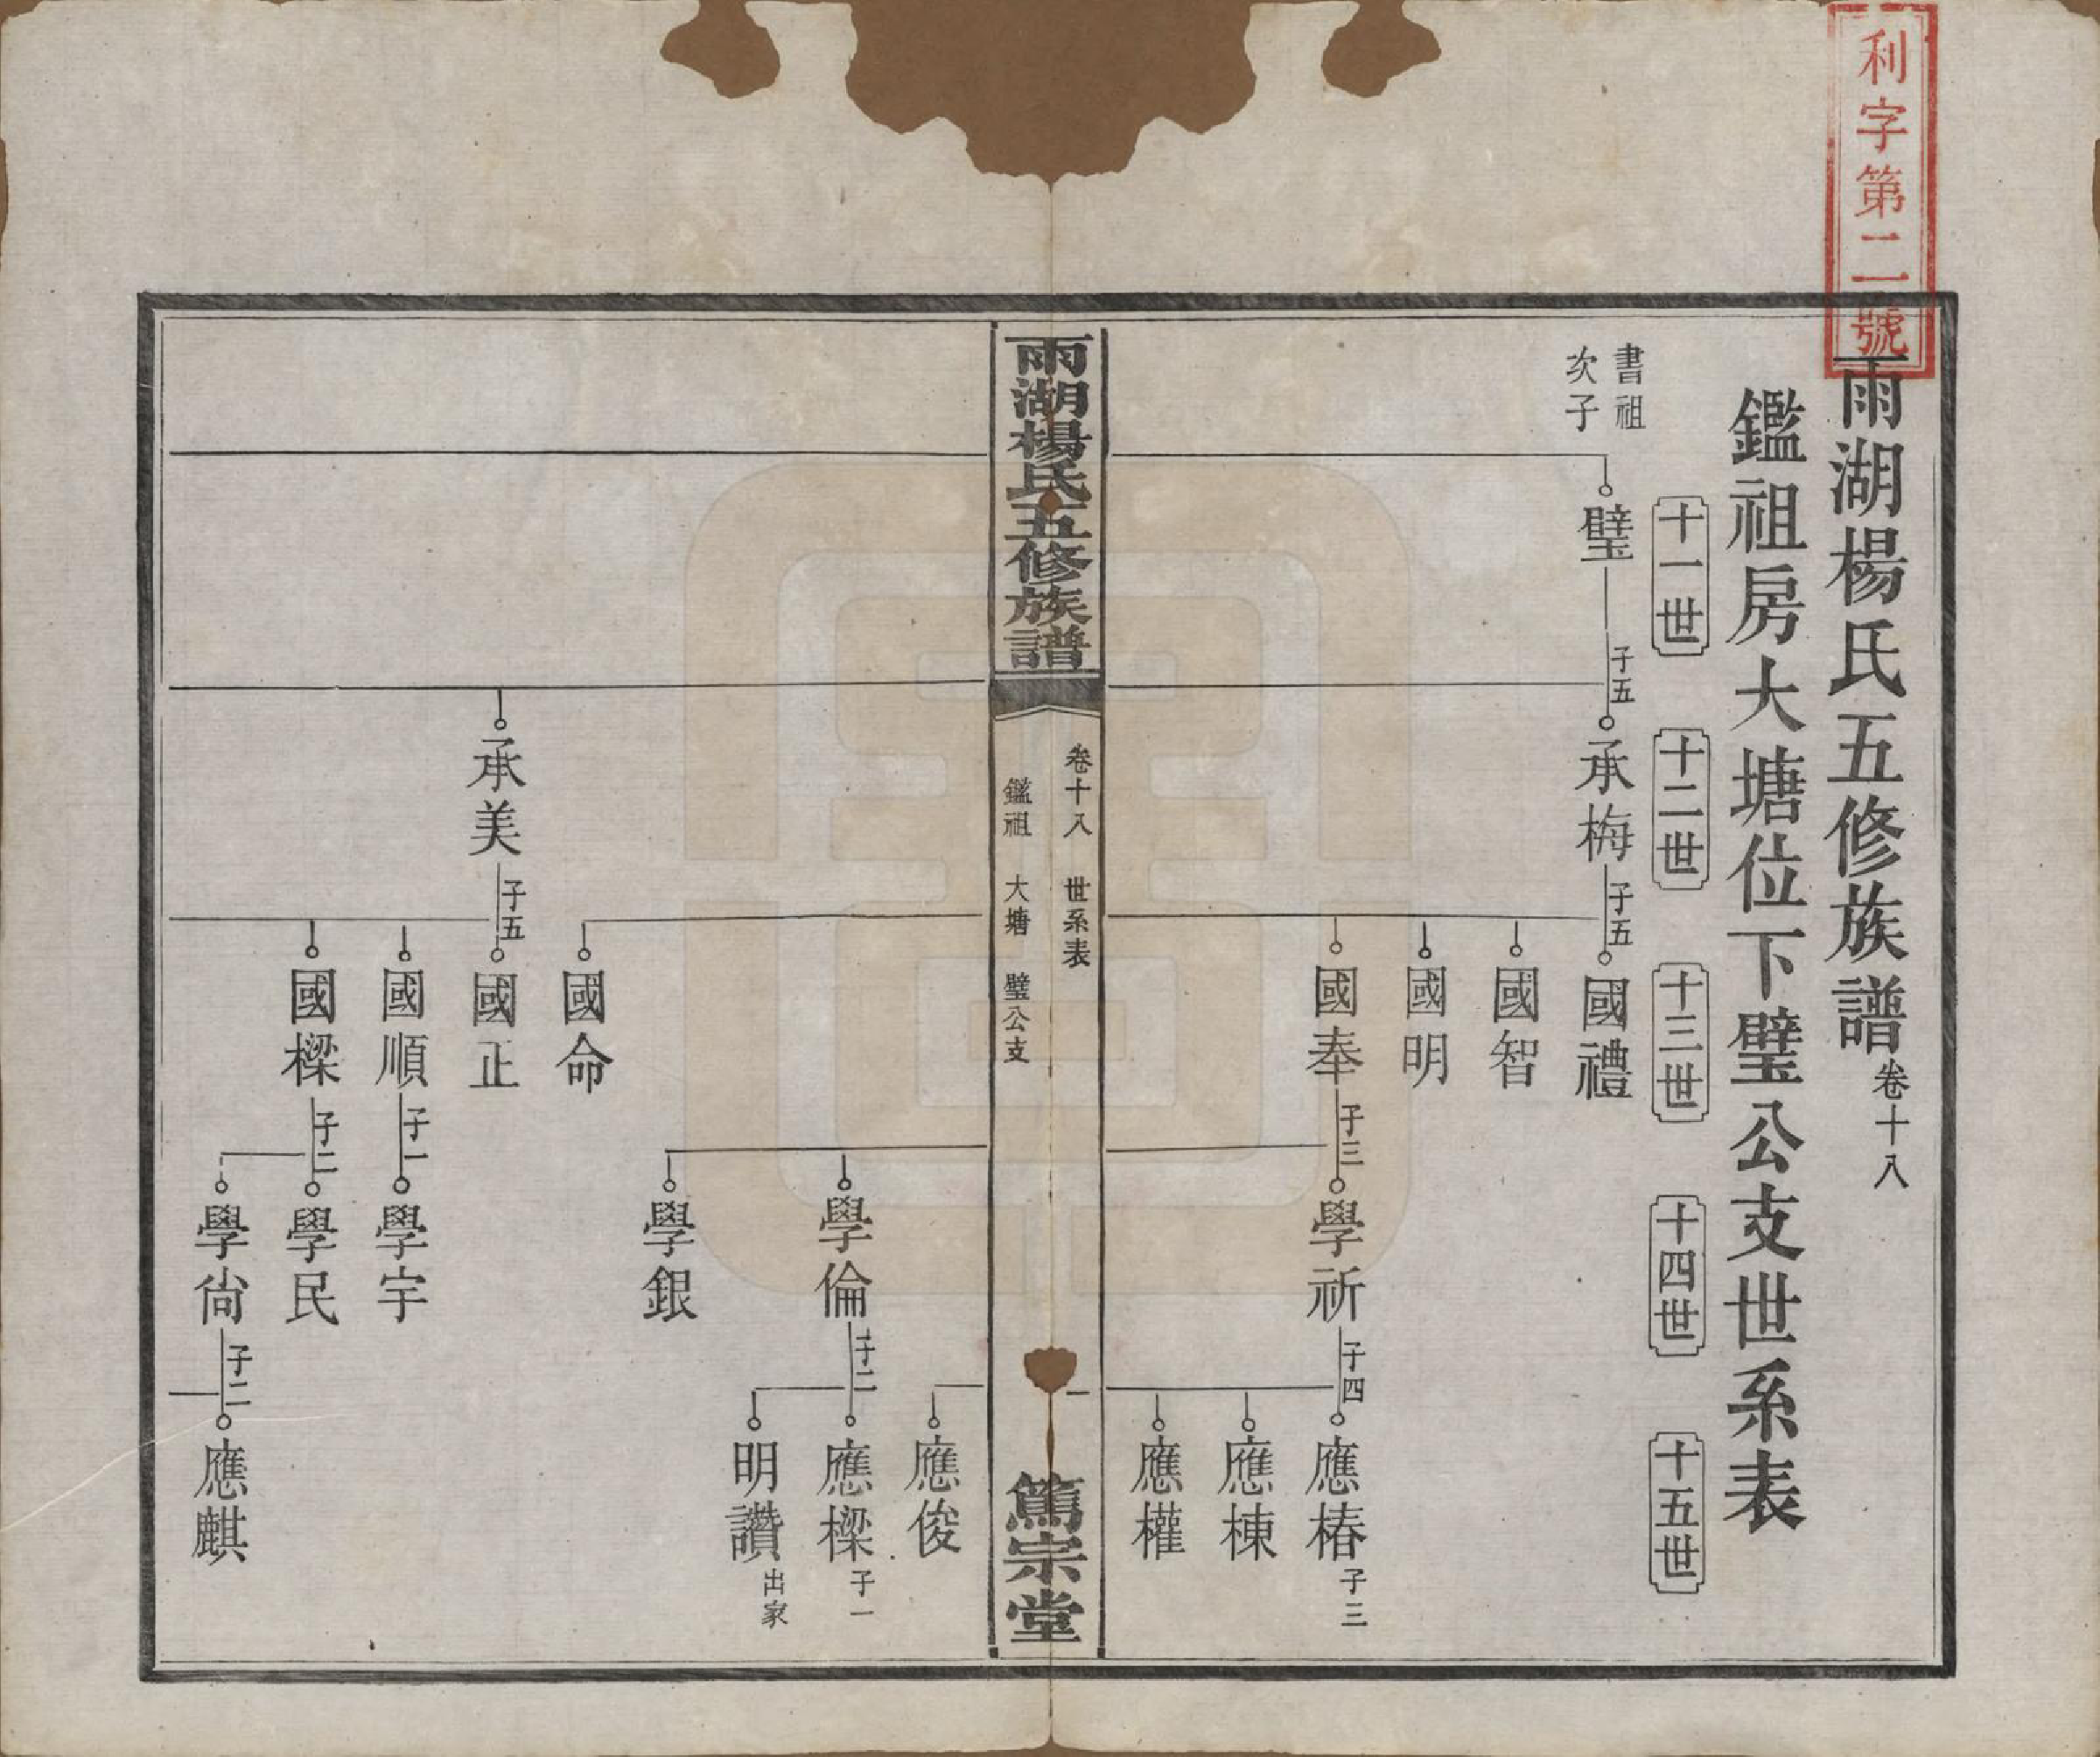 利字第二號
雨湖楊氏五修族譜卷十八
鑑祖房大塘位下璧公支世系表
十一世
十二世
十三世
十四世
十五世
書祖
次子
璧
子五
承梅
子五
國禮
國智
國明
國奉
子三
學祈
子四
應椿
子三
應棟
應權
雨湖楊氏五修族譜
卷十八 世系表
一
鑑祖 大塘 璧公支
篤宗堂
應俊
學倫
子二
應樑
子一
明讚
出家
學銀
國命
承美
子五
國正
國順
子一
學宇
國樑
子二
學民
學尙
子二
應麒